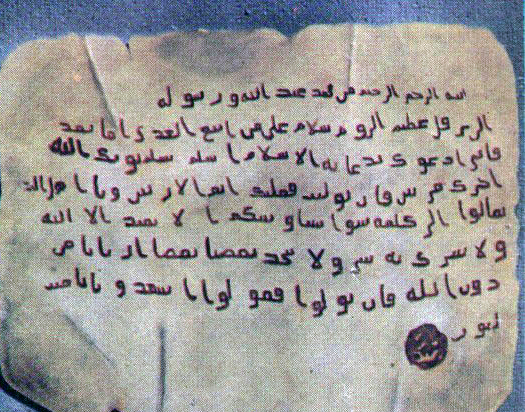 بسم الله الرحمن الرحيم من محمد عبد الله ورسوله
الى هرقل عظيم الروم سلام على من اتبع الهدى اما بعد
فانى ادعوك بدعاية الاسلام اسلم تسلم يوتك الله
اجرك مرتين فان توليت فعليك اثم الاريسين ويا اهل
تعالوا الى كلمة سوا بيننا وبينكم ا لا نعبد الا الله
ولا نشرك به شى ولا يتخذ بعضنا بعضا اربابا من
دون الله فان تولوا فقولوا اشهدوا بانا مسـ
لمون